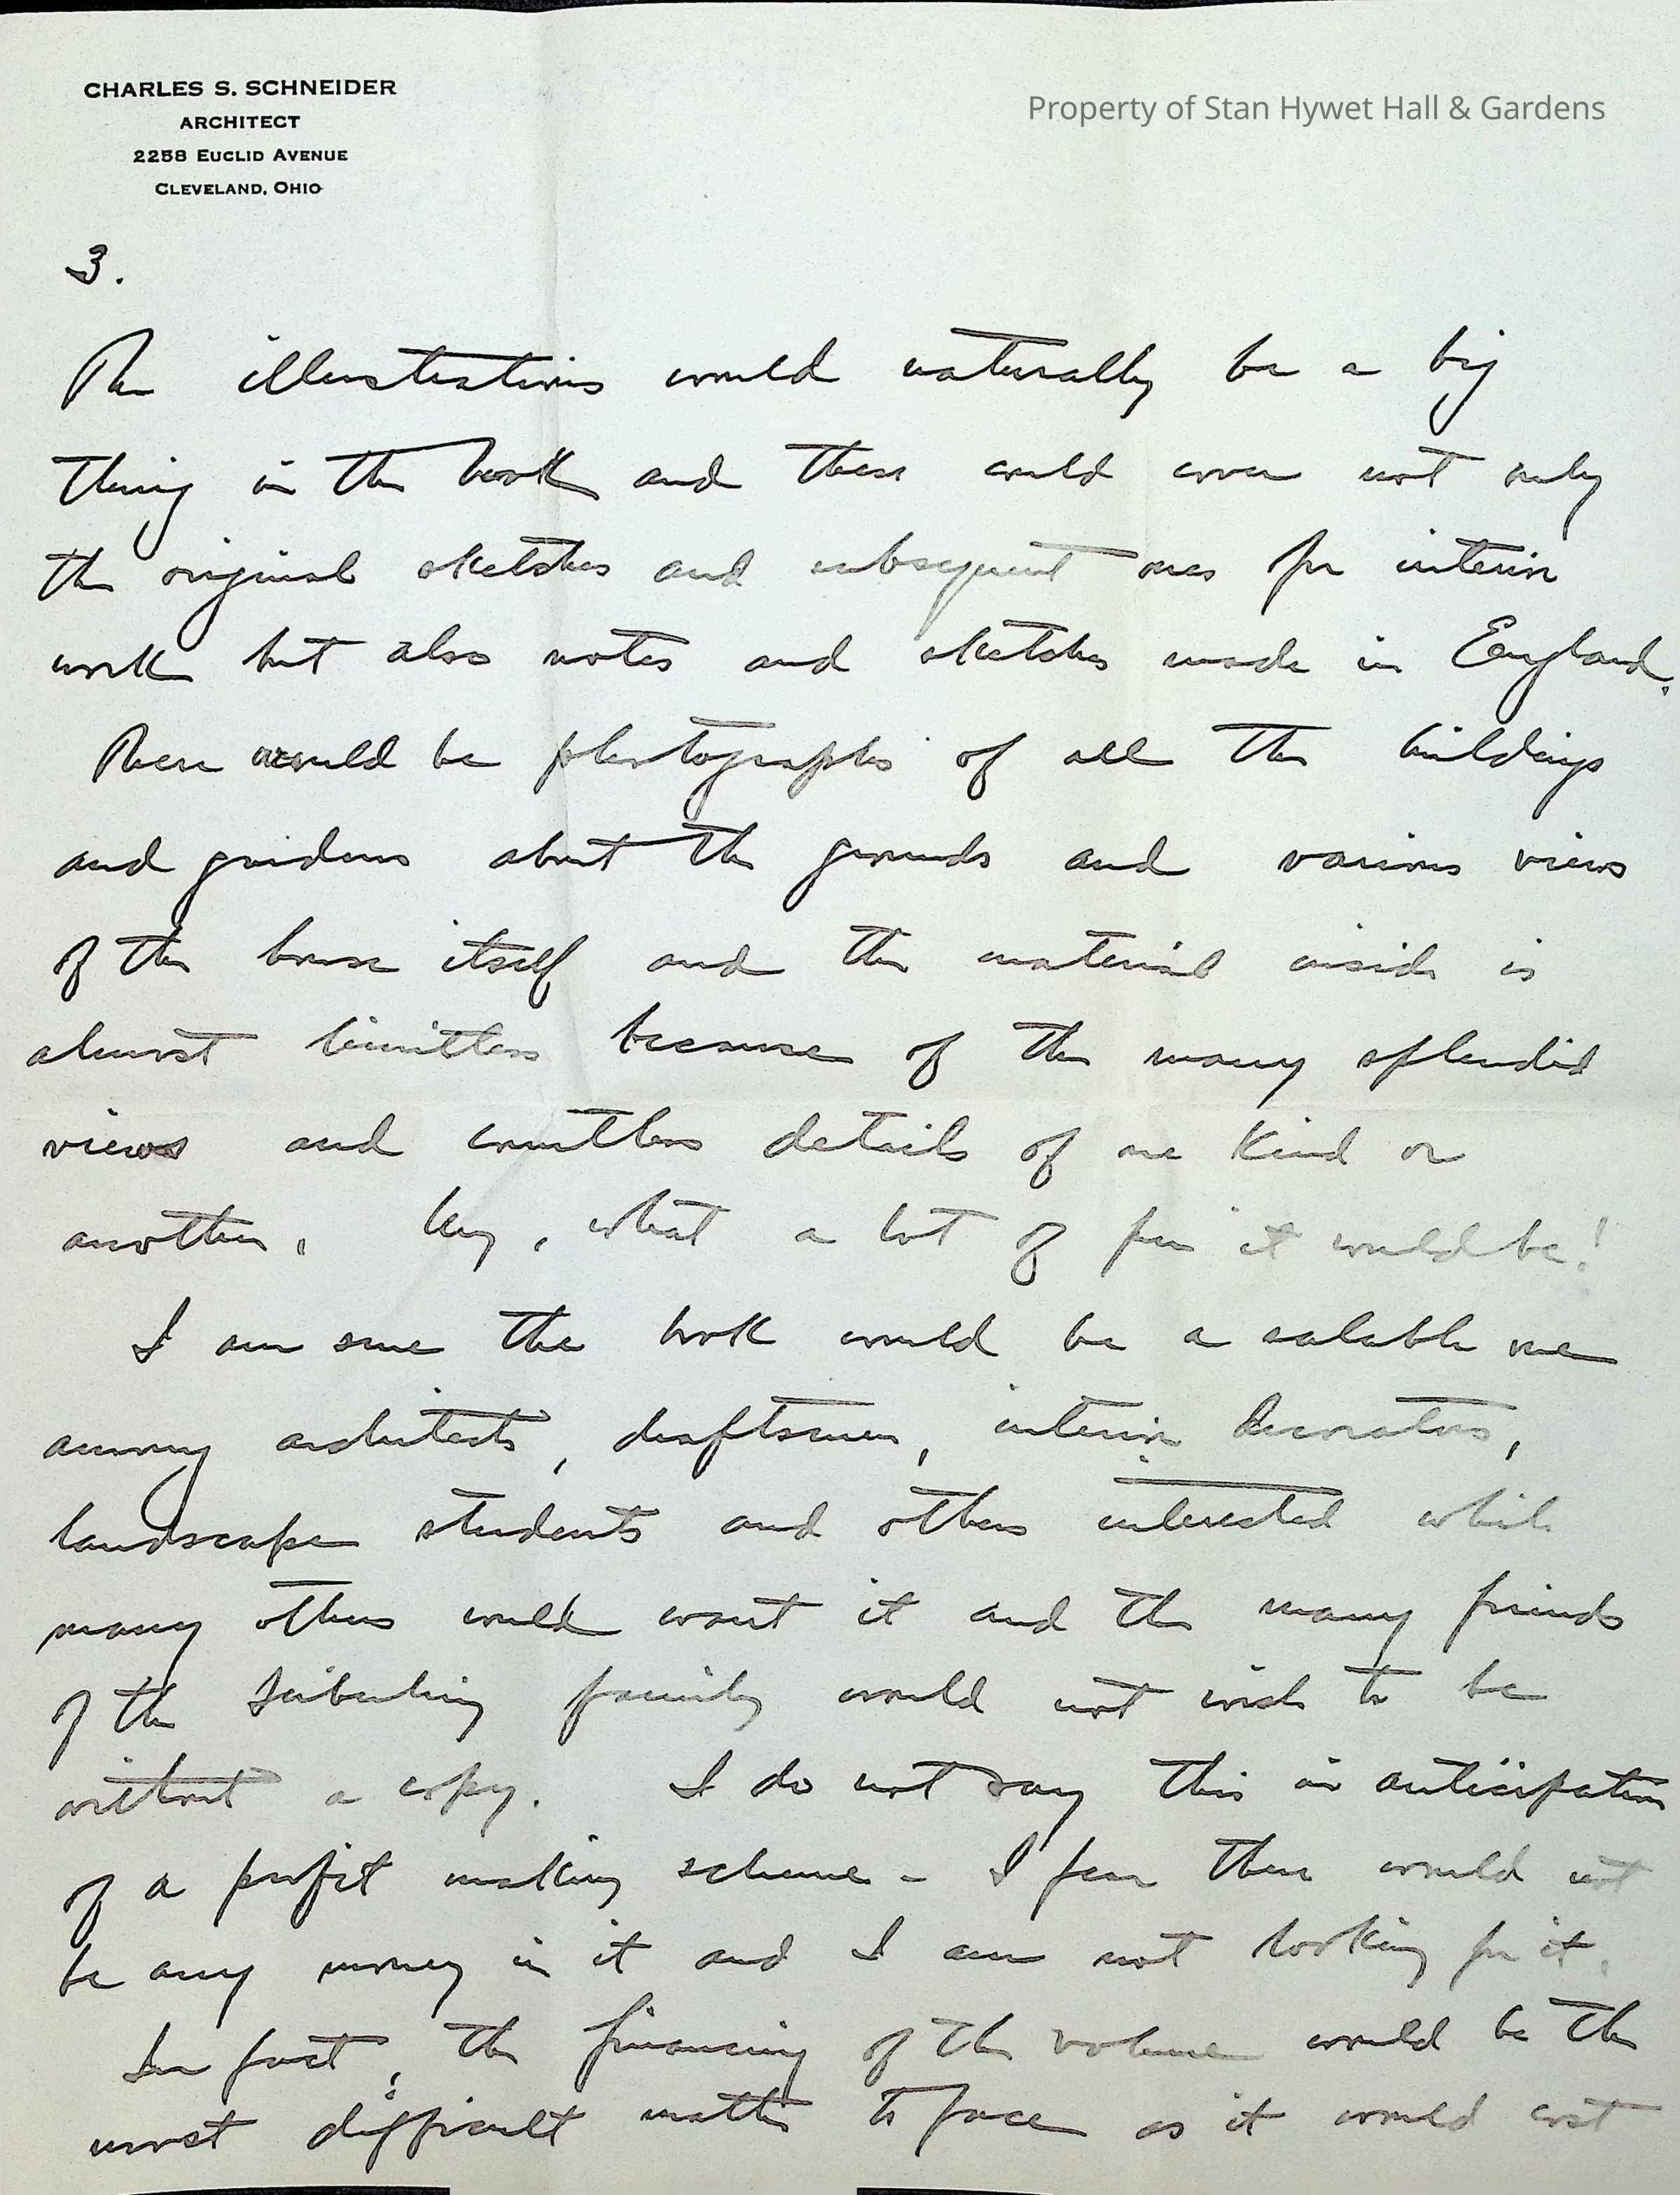 CHARLES S. SCHNEIDER
ARCHITECT
2258 EUCLID AVENUE
CLEVELAND, OHIO
Property of Stan Hywet Hall & Gardens
3.
The illustrations would naturally be a big
thing in the book and these could cover not only
the original sketches and subsequent ones for interior
work but also notes and sketches made in England.
There would be photographs of all the buildings
and gardens about the grounds and various views
of the house itself and the material inside is
almost limitless because of the many splendid
views and countless details of one kind or
another. My, what a lot of fun it would be!
I am sure the book would be a salable one
among architects, draftsmen, interior decorators,
landscape students and others interested while
many others would want it and the many friends
of the Seiberling family would not wish to be
without a copy. I do not say this in anticipation
of a profit making scheme - I fear there would not
be any money in it and I am not looking for it.
In fact, the financing of the volume would be the
most difficult matter to face as it would cost